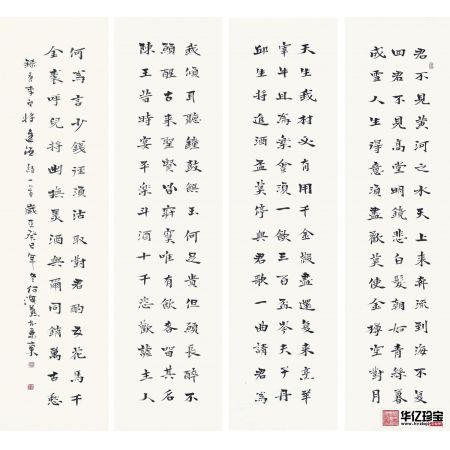 君不見黃河之水天上来奔流到海不復
回君不見高堂明鏡悲白髮朝如青絲暮
成雪人生得意須盡歡莫使金樽空對月
天生我材必有用千金散盡還復来烹羊
宰牛且為樂會須一飲三百盃岑夫子丹
邱生将進酒盃莫停與君歌一曲請君為
我傾耳聽鐘鼓饌玉何足貴但願長醉不
願醒古来聖賢皆寂寞唯有飲者留其名
陳王昔時宴平樂斗酒十千恣歡謔主人
何為言少錢徑須沽取對君酌五花馬千
金裘呼兒将出換美酒與爾同銷萬古愁
李白将進酒詩一首歲在癸巳年
华亿珍宝